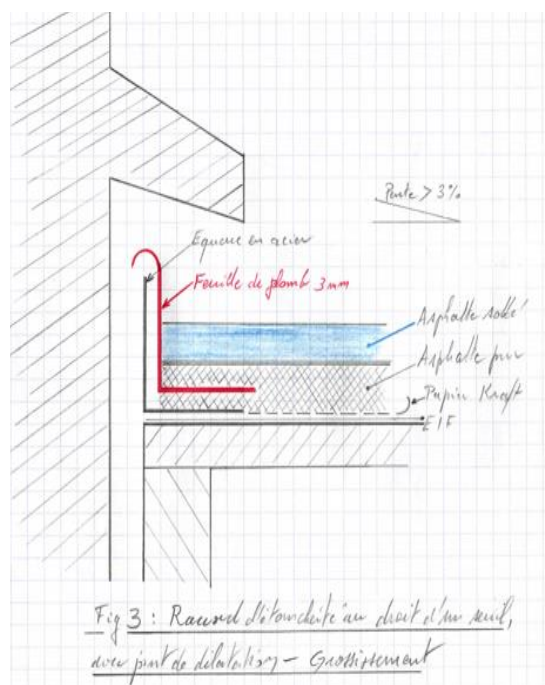 Pente > 3%
Equerre en acier
Feuille de plomb 3mm
Asphalte sablé
Asphalte pur
Papier Kraft
EIF
Fig 3 : Raccord d'étanchéité au droit d'un seuil,
avec joint de dilatation - Grossissement